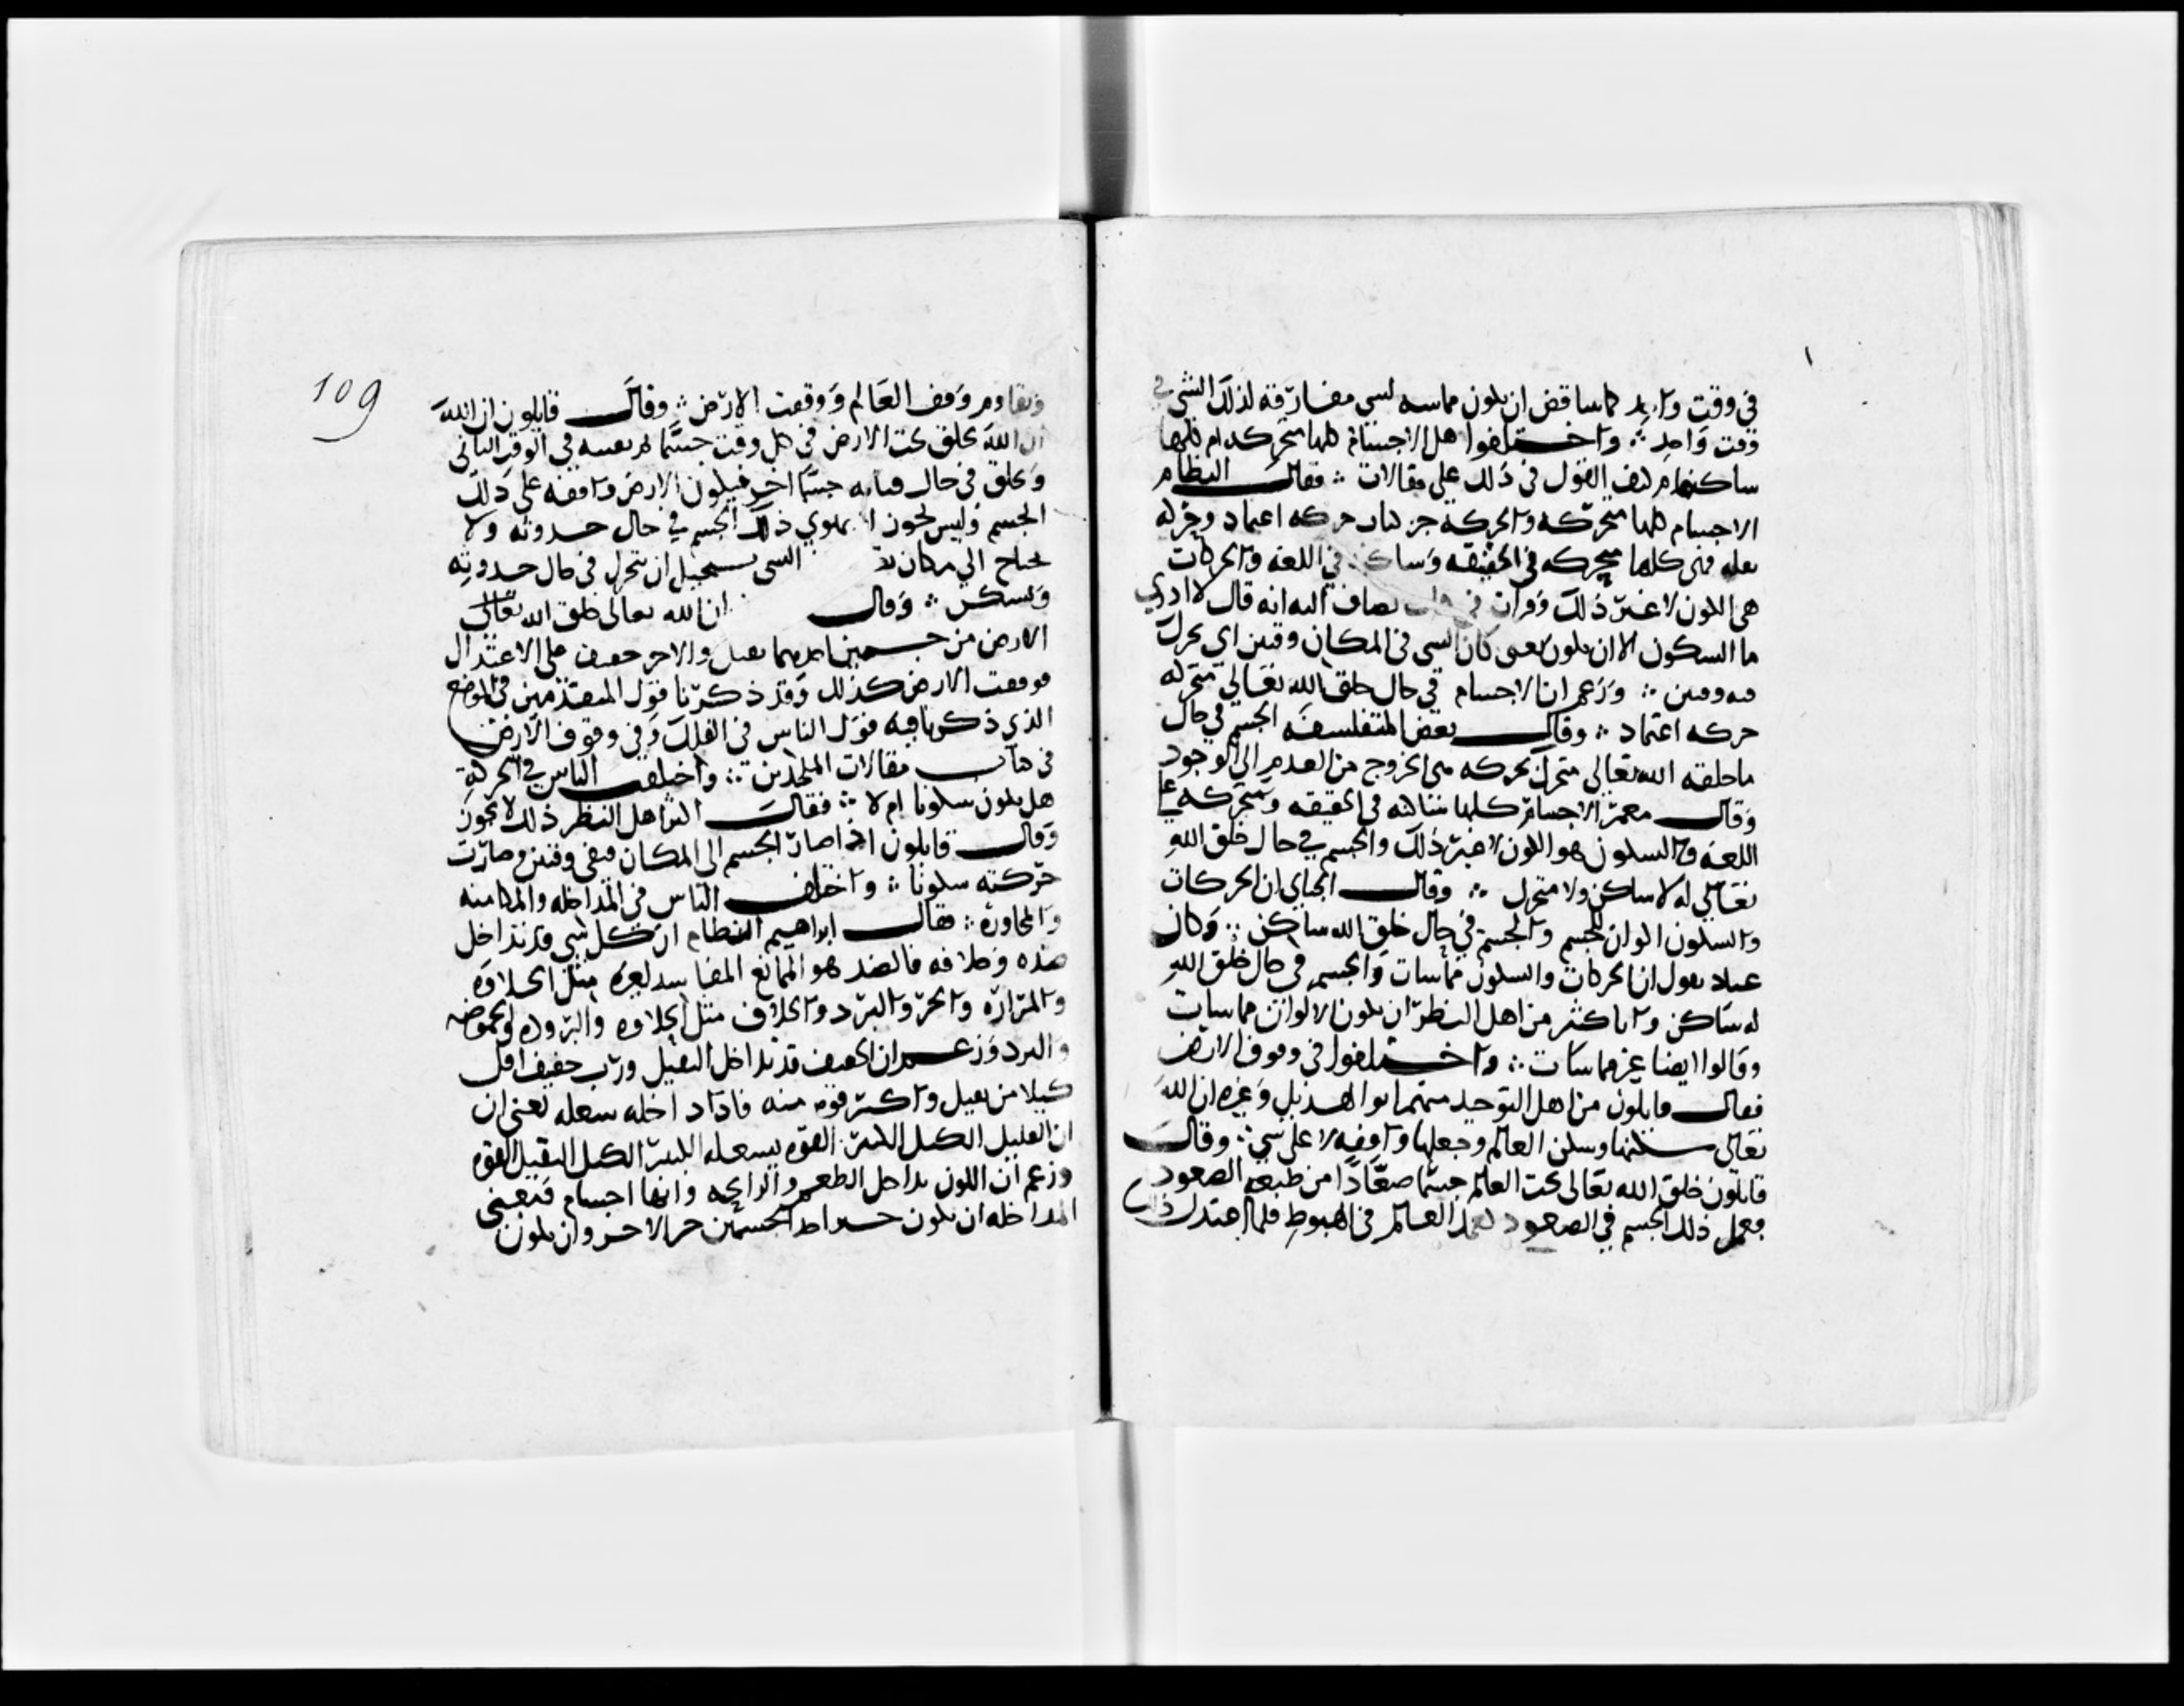 في وقت واحد كما يناقض ان يكون مماسه لشي مفارقة لذلك الشي في
وقت واحد ∴ واختلفوا هل الاجسام كلها متحركه ام كلها
ساكنه ام كيف القول في ذلك على مقالات ∴ فقال النظام
الاجسام كلها متحركه والحركه حركتان حركه اعتماد وحركه
نقله فهى كلها متحركه في الحقيقه وساكنه في اللغه والحركات
هى الكون لا غير ذلك وقرات في كتاب يضاف اليه انه قال لا ادري
ما السكون الا ان يكون يعنى كان الشى في المكان وقتين اي تحرك
فيه وقتين ∴ وزعم ان الاجسام في حال خلق الله تعالى متحركه
حركه اعتماد ∴ وقال بعض المتفلسفه الجسم في حال
ما خلقه الله تعالى متحرك بحركه هى الخروج من العدم الي الوجود
وقال معمر الاجسام كلها ساكنه في الحقيقه ومتحركه على
اللغه والسكون هو الكون لا غير ذلك والجسم في حال خلق الله
تعالي له لا ساكن ولا متحرك ∴ وقال الجباي ان الحركات
والسكون اكوان للجسم والجسم في حال خلق الله ساكن ∴ وكان
عباد يقول ان الحركات والسكون مماسات والجسم في حال خلق الله
له ساكن واباكثر من اهل النظر ان يكون الاكوان مماسات
وقالوا ايضا غير مماسات ∴ واختلفوا في وقوف الارض
فقال قايلون من اهل التوحيد منهم ابو الهذيل وغيره ان الله
تعالى سكنها وسكن العالم وجعلها واقفه لا على شي ∴ وقال
قايلون خلق الله تعالى تحت العالم جسما صعادا من طبعه الصعود
فعمل ذلك الجسم في الصعود كعمل العالم في الهبوط فلما اعتدل ذلك
109
وتقاوم وقف العالم ووقفت الارض ∴ وقال قايلون ان الله
ان الله يخلق تحت الارض في كل وقت جسما ثم يفنيه في الوقت الثاني
ويخلق في حال فنايه جسما اخر فيكون الارض واقفه على ذلك
الجسم وليس يجوز ان يهوي ذلك الجسم في حال حدوثه ولا
يحتاج الي مكان الشى يستحيل ان يتحرك في حال حدوثه
ويسكن ∴ وقال ان الله تعالى خلق الله تعالى
الارض من جسمين احدهما ثقيل والاخر خفيف على الاعتدال
فوقفت الارض كذلك وقد ذكرنا قول المتقدمين في الموضع
الذي ذكرنا فيه قول الناس في الفلك وفي وقوف الارض
في كتاب مقالات الملحدين ∴ واختلف الناس في الحركة
هل يكون سكونا ام لا ∴ فقال اكثر اهل النظر ذلك لا يجوز
وقال قايلون اذا صار الجسم الى المكان فبقى وقتين صارت
حركته سكونا ∴ واختلف الناس في المداخله والمكامنه
والمجاورة ∴ فقال ابراهيم النظام ان كل شي قد يداخل
ضده وخلافه فالضد هو الممانع المفاسد لغيره مثل الحلاوه
والمرارة والحر والبرد والخلاف مثل الحلاوه والبروده والحموضه
والبرد وزعم ان الخفيف قد يداخل الثقيل ورب خفيف اقل
كيلا من ثقيل واكثر قوة منه فاذا داخله شغله يعنى ان
ان القليل الكيل الكثير القوه يشغله الكثير الكيل القليل القوه
وزعم ان اللون يداخل الطعم والرايحه وانها اجسام ومعنى
المداخله ان يكون حيز احد الجسمين حيز الاخر وان يكون